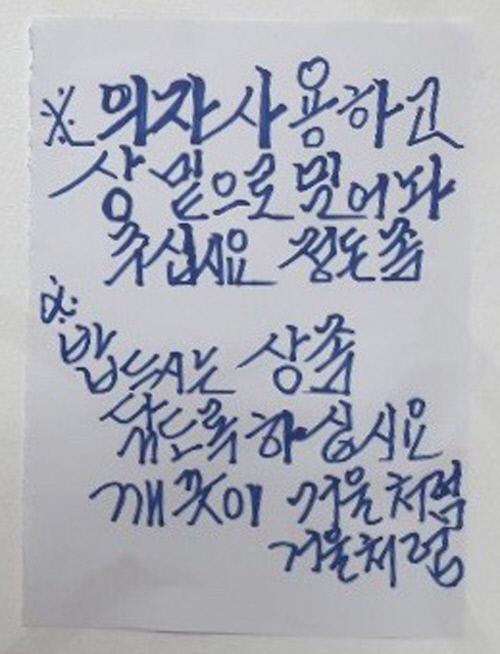 ※ 의자 사용하고
상 밑으로 밀어놔
주십시요 정돈 좀
※
밥드시는 상좀
닦도록 하십시요
깨끗이 거울처럼
거울처럼